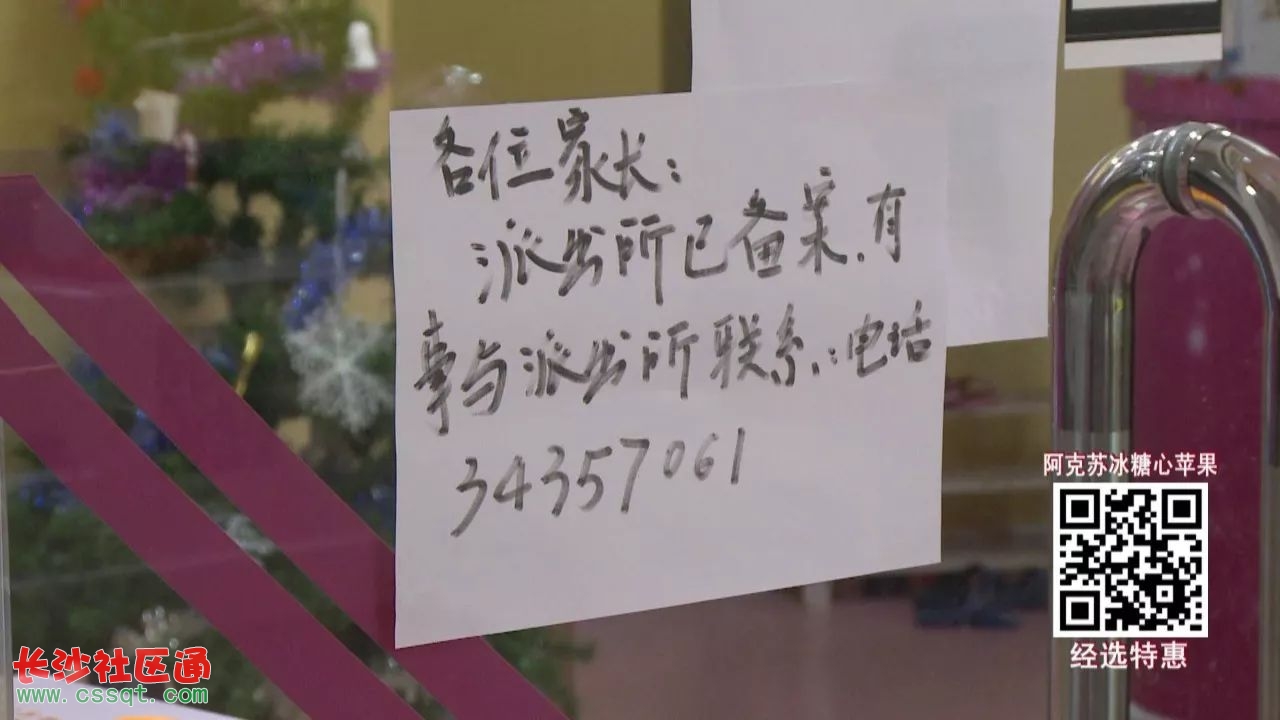 各位家长：
派出所已备案，有
事与派出所联系，：电话
34357061
阿克苏冰糖心苹果
经选特惠
长沙社区通
www.cssqt.com